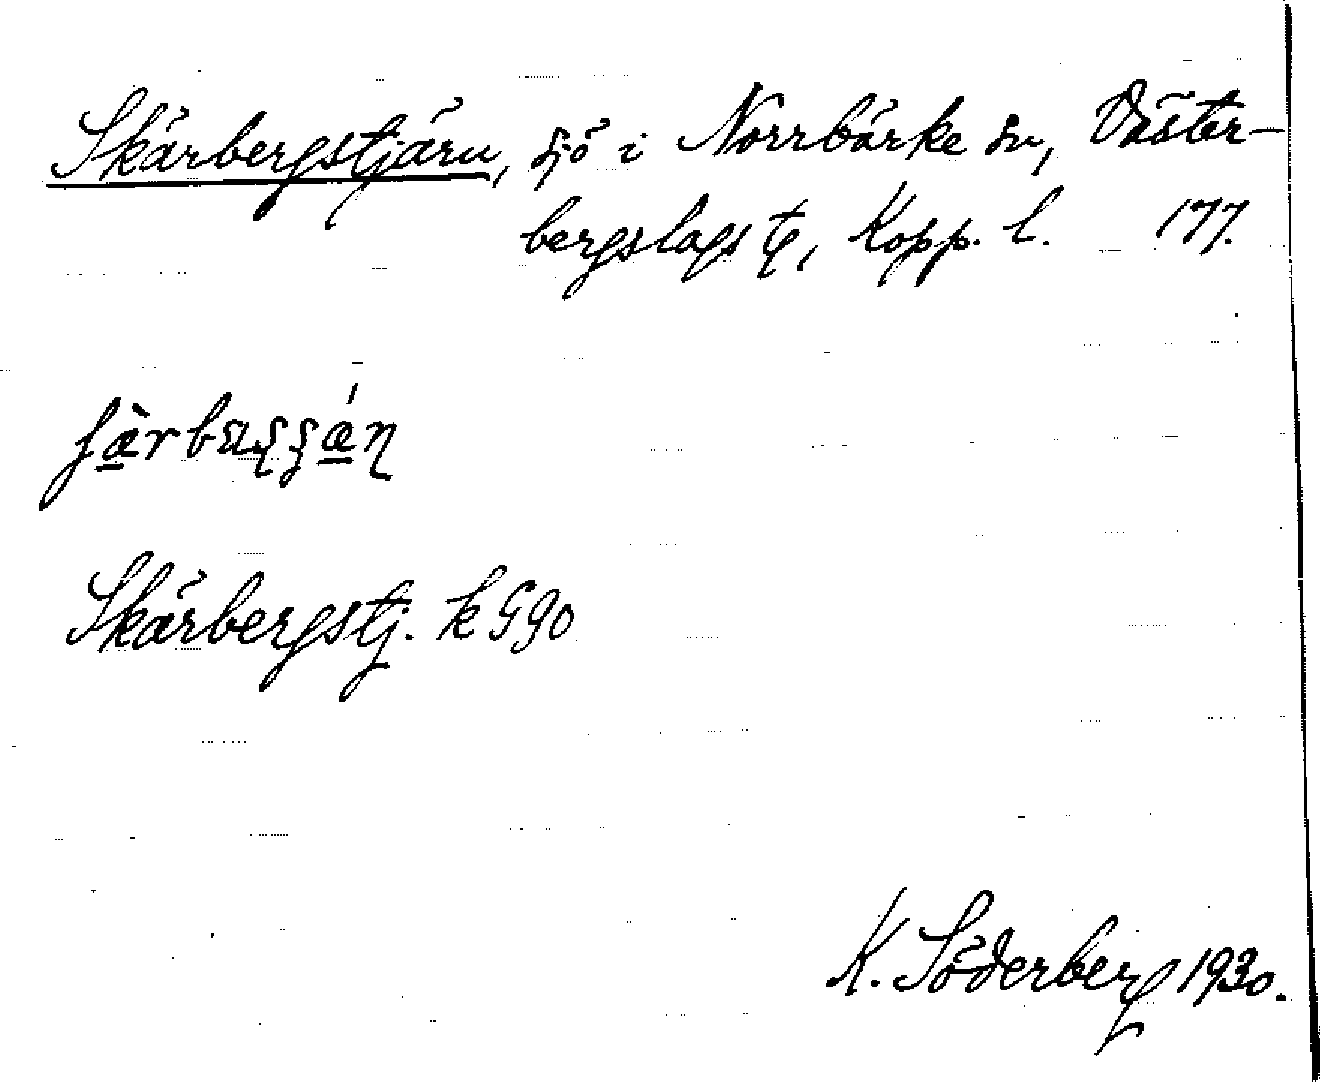 Skärbergstjärn, sjö i Norrbärke sn, Väster-
bergslags tg, Kopp. l. 177.
Skärbergstj. k G90
K. Söderberg 1930.